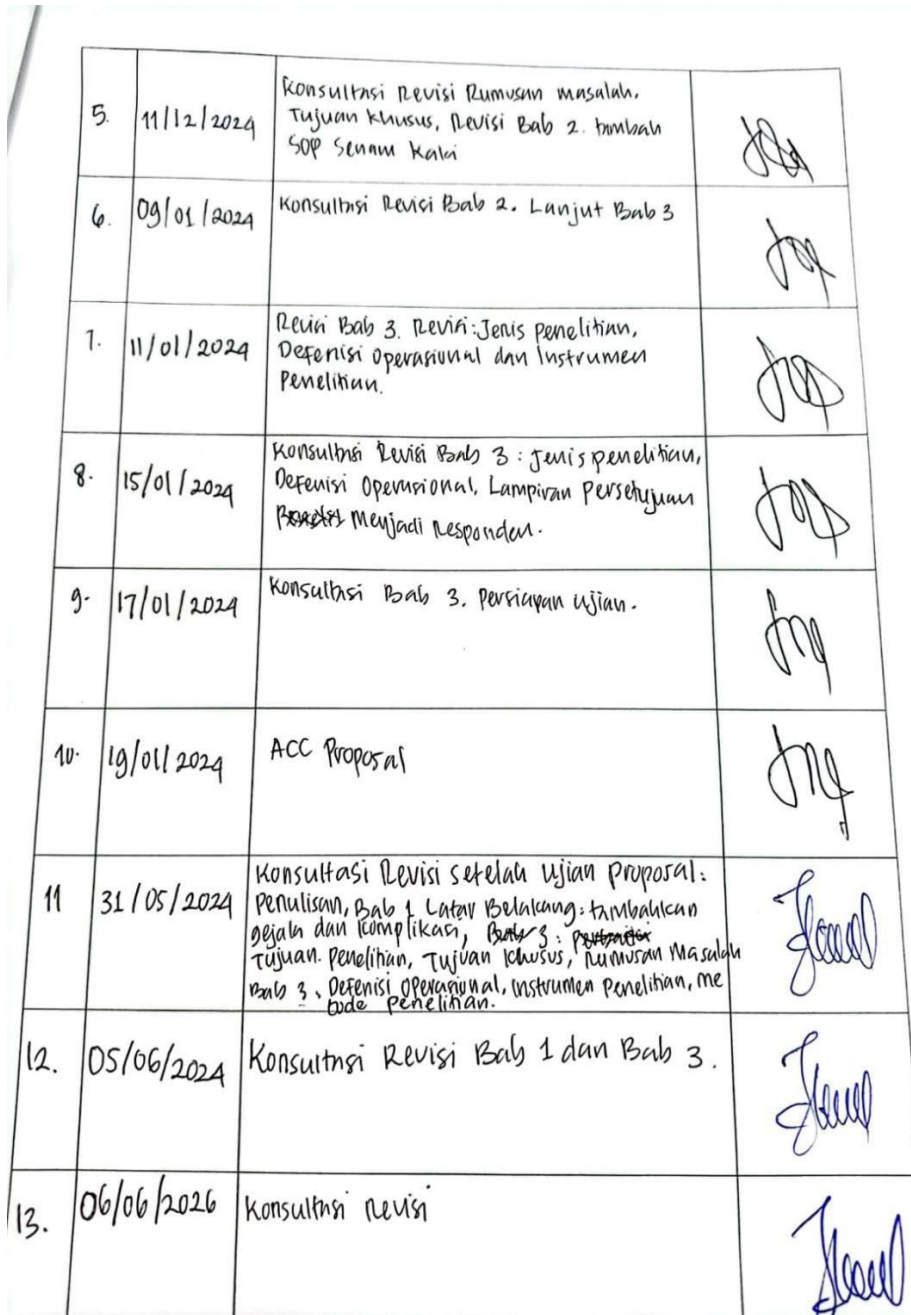 5. 11/12/2024 Konsultasi Revisi Rumusan masalah,
Tujuan Khusus, Revisi Bab 2. tambah
SOP Senam Kaki
6. 09/01/2024 Konsultasi Revisi Bab 2. Lanjut Bab 3
7. 11/01/2024 Revisi Bab 3. Revisi: Jenis penelitian,
Defenisi Operasional dan Instrumen
Penelitian.
8. 15/01/2024 Konsultasi Revisi Bab 3 : Jenis penelitian,
Defenisi Operasional, Lampiran Persetujuan
Menjadi Responden.
9. 17/01/2024 Konsultasi Bab 3. Persiapan ujian.
10. 19/01/2024 ACC Proposal
11 31/05/2024 Konsultasi Revisi setelah ujian proposal:
Penulisan, Bab 1 Latar Belakang: tambahkan
gejala dan komplikasi, Bab 3 :
Tujuan. Penelitian, Tujuan Khusus, Rumusan Masalah
Bab 3. Defenisi Operasional, instrumen Penelitian, me
tode penelitian.
12. 05/06/2024 Konsultasi Revisi Bab 1 dan Bab 3.
13. 06/06/2026 Konsultasi Revisi